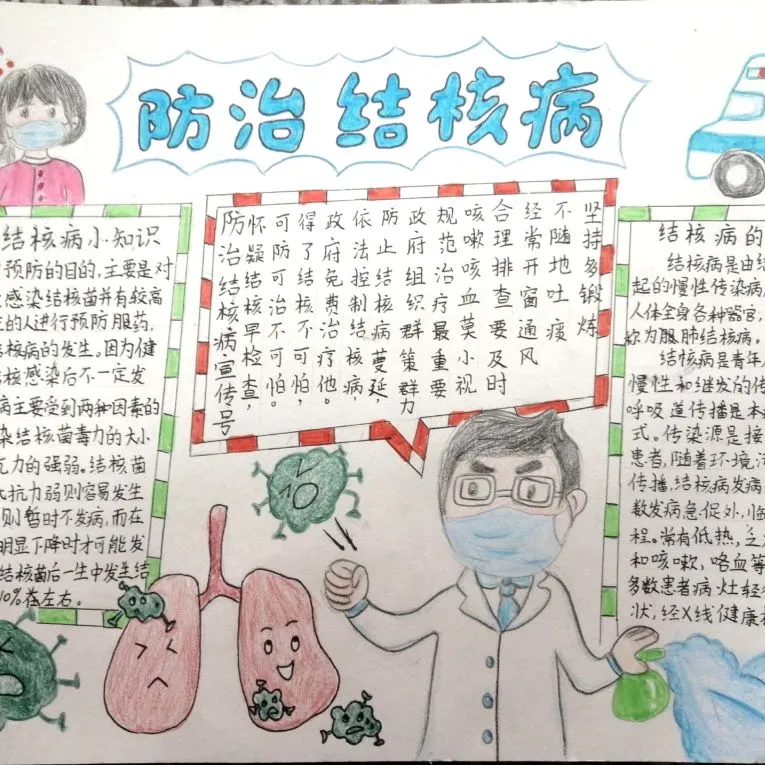 防治结核病
结核病小知识
预防的目的,主要是对
感染结核菌并有较高
的人进行预防服药,
结核病的发生。因为健
核感染后不一定发
病主要受到两种因素的
染结核菌毒力的大小
抗力的强弱。结核菌
抗力弱则容易发生
则暂时不发病,而在
明显下降时才可能发
结核菌后一生中发生结
10%在左右。
防治结核病宣传号
怀疑结核早检查,
可防可治不可怕。
得了结核不可怕,
政府免费治疗他。
依法控制结核病,
防止结核病蔓延、
政府组织群策群力
规范治疗最重要
咳嗽咳血莫小视
合理排查要及时
经常开窗通风
不随地吐痰
坚持多锻炼
结核病的
结核病是由结
起的慢性传染病,
人体全身各种器官,
称为服肺结核病。
结核病是青年
慢性和继发的传
呼吸道传播是本
式。传染源是接
患者,随着环境污
传播,结核病发病
数发病急促外,临
程。常有低热,乏
和咳嗽,咯血等
多数患者病灶轻
状,经X线健康